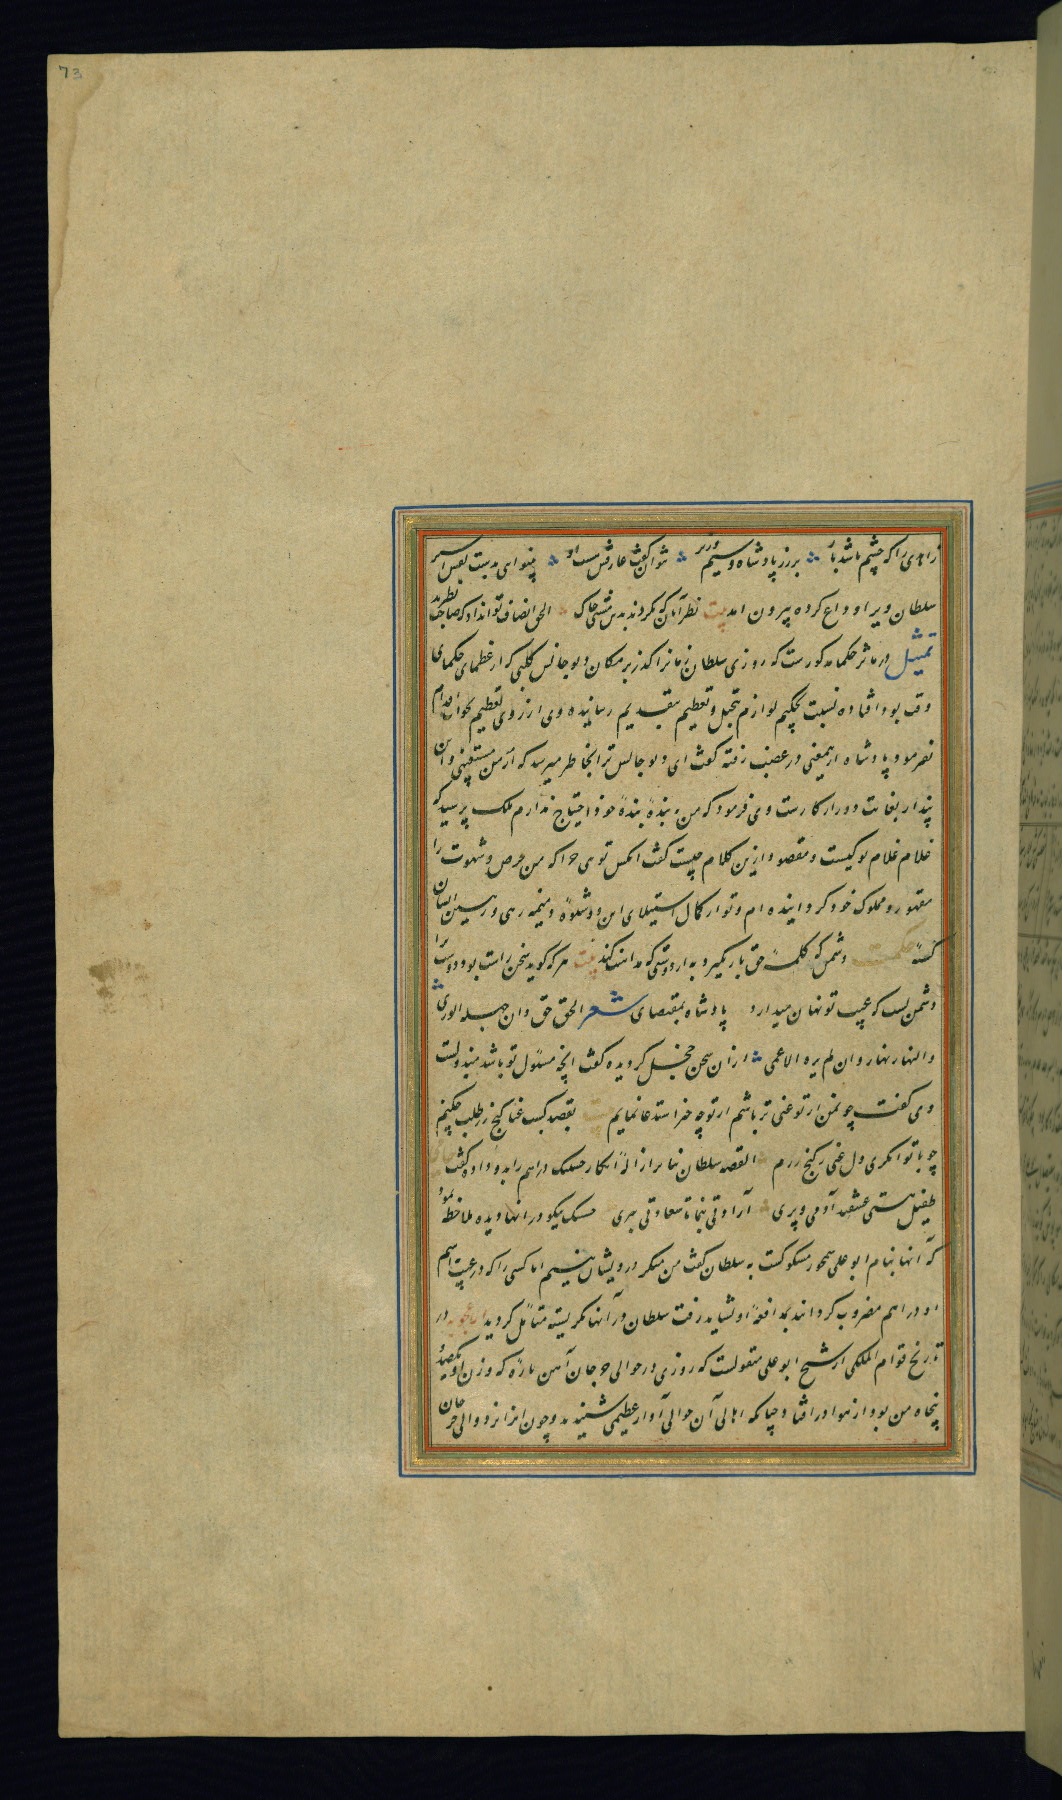 73
زاهدی را که چشم باشد باز ؞ بر زر پادشاه و سیم وزیر ؞ نتوان گفت عارفش ؞ پیشوای
سلطان ویرا وداع کرده بیرون امد بیت نظر آنان که نکردند بدین مشتی خاک ؞ الحق انصاف توان داد که صاحب نظرند
تمثیل در مآثر حکما مذکورست که روزی سلطان زمانرا گذر بر مکان دیوجانس کلبی که از عظمای حکمای
وقت بود افتاده نسبت بحکیم لوازم تبجیل و تعظیم بتقدیم رسانیده وی از روی تعظیم بجواب اقدام
نفرمود پادشاه ازینمعنی در غضب رفته گفت ای دیوجانس ترا بخاطر میرسد که از من مستغنی و این
پندار بغایت دور از کارست وی فرمود که من به بندهٔ بندهٔ خود احتیاج ندارم ملک پرسید که
غلام غلام تو کیست و مقصود ازین کلام چیست گفت انکس توی چرا که من حرص و شهوت را
مقهور و مملوک خود گردانیده ام و تو از کمال استیلای این دو
گشتهٔ حکمت دشمنی که کلمهٔ حق باز نگیرد به از دوستی که مداهنت کند بیت هرکه گوید سخن راست بود دوست ترا
دشمن تست که عیب تو نهان میدارد پادشاه بمقتضای شعر الحق حق وان جهله الوری ؞
والنهار نهار وان لم یره الاعمی ؞ ازان سخن خجل گردیده گفت انچه مسئول تو باشد مبذولست
وی گفت چو من از تو غنی تر باشم از تو چه چیز استدعا نمایم بیت بقصد کسب غنا گنج زر طلب چکنم
چو با توانگری دل غنی ز گنج زرم القصه سلطان بنابر ازالهٔ انکار حسنک دراهم را بدو داده گفت
طفیل هستی عشقند آدمی و پری ؞ ارادتی بنما تا سعادتی ببری حسنک نیکو در انها دیده ملاحظه نمود
که آنها بنام ابوعلی سمجور مسکوکست به سلطان گفت من منکر درویشان نیستم اما کسی را که در غیب اسم
او دراهم مضروب گردانند بمدافعهٔ او نشاید رفت سلطان در آنها نگریسته متأمل گردید اعجوبه در
تاریخ قوام الملکی از شیخ ابوعلی منقولست که روزی در حوالی جوجان آهن پارهٔ که وزن او یکصد و
پنجاه من بود از هوا در افتاد چنانکه اهالی آن حوالی آواز عظیمی شنیدند و چون انرا نزد والی جرجان